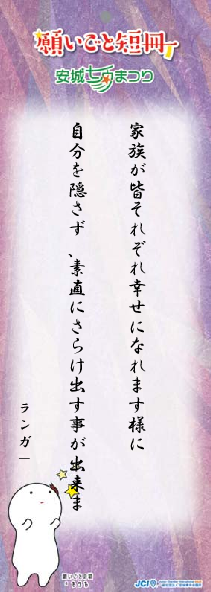 願いごと短冊
安城七夕まつり
家族が皆それぞれ幸せになれます様に
自分を隠さず、素直にさらけ出す事が出来ま
ランガー
JCI